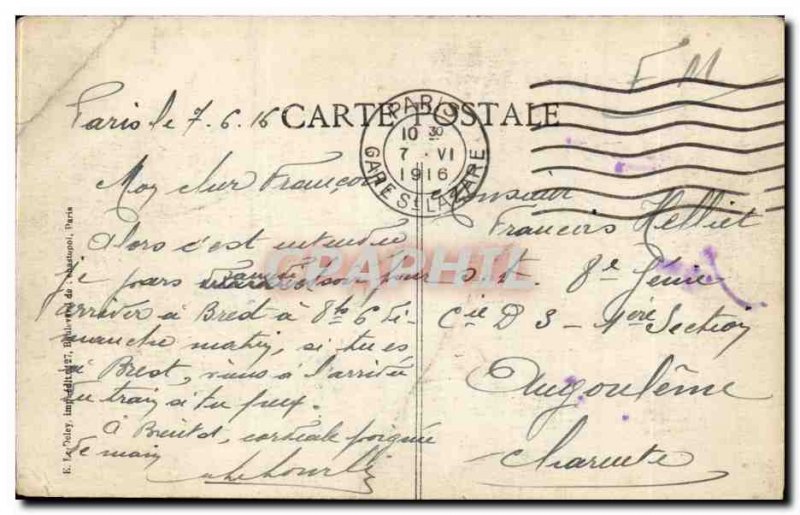 F M
Paris le 7.6.16
CARTE POSTALE
PARIS
10 30
7 · VI
1916
GARE St LAZARE
Mon cher François
Alors c'est entendu
Je pars samedi soir pour
arriver à Brest à 8h 6 di-
manche matin, si tu es
à Brest, viens à l'arrivée
du train si tu peux.
à Bientôt, cordiale poignée
de main
Monsieur
François Helliet
8e Génie
Cie D 3 - 1ère Section
Angoulême
Charente
E. Le Deley, imp.-édit., 127, Boulevard de Sébastopol, Paris
CPAPHIL